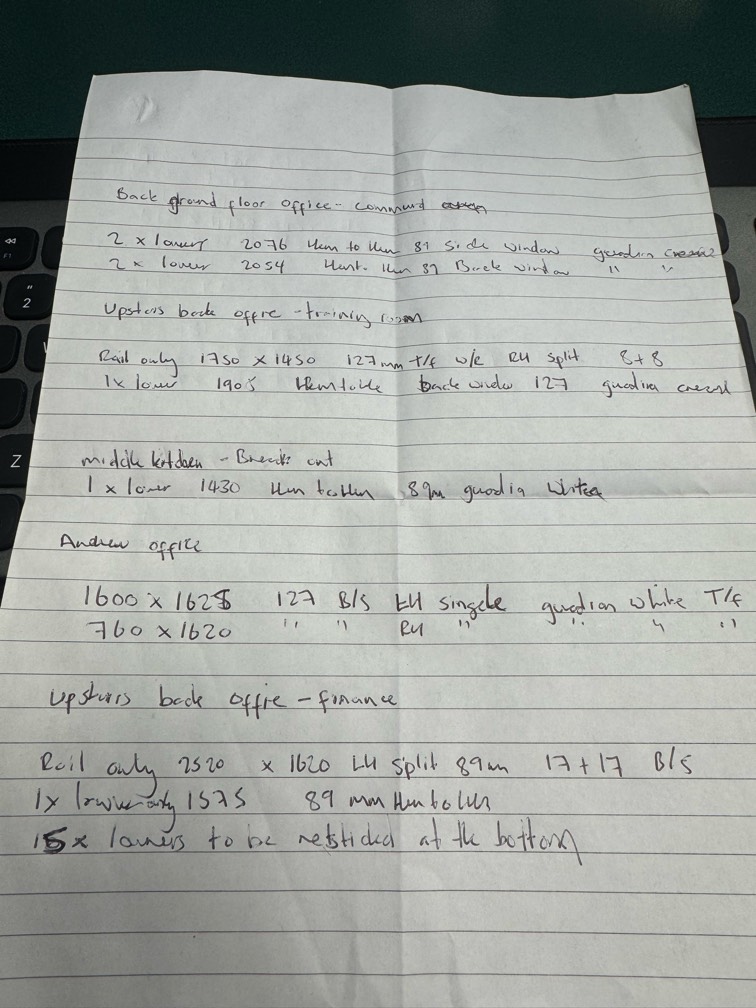 Back ground floor office - command
2 x louvres 2076 Hem to Hem 89 Side window guardian
2 x louvre 2054 Hem to Hem 89 Back window " "
Upstairs back office - training room
Rail only 1750 x 1450 127mm T/f w/c RH split 8+8
1x louvre 1905 back window 127 guardian
middle kitchen - Break out
1 x louvre 1430 Hem to Hem 89m guardia
Andrew office
1600 x 1625 127 B/S LH single guardian white T/f
760 x 1620 " " RH " " " "
Upstairs back offie - finance
Rail only 2520 x 1620 LH split 89mm 17+17 B/S
1x 1575 89 mm Hem to
15x louvers to be at the bottom
Z
2
"
F1